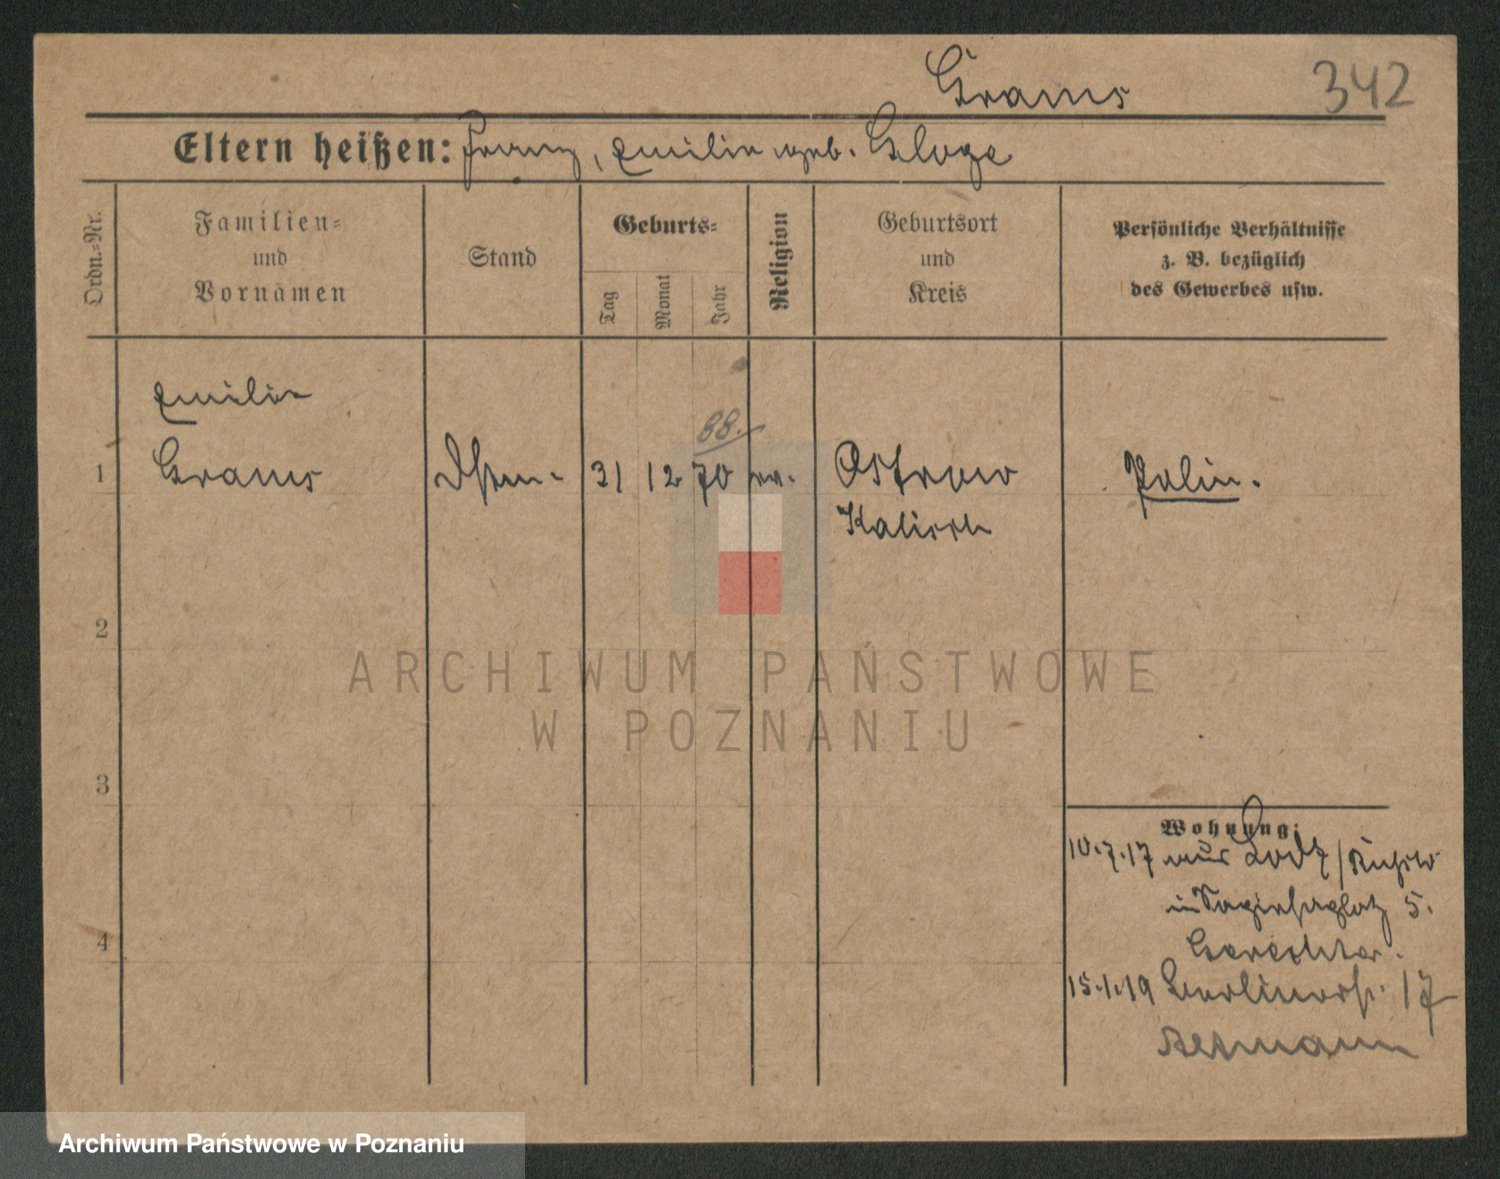 Grams 342
Eltern heißen: Franz, Emilie geb. Kloge
Ordn.-Nr.
Familien-
und
Vornamen
Stand
Geburts-
Tag
Monat
Jahr
Religion
Geburtsort
und
Kreis
Persönliche Verhältnisse
z. B. bezüglich
des Gewerbes usw.
Emilie
88.
1 Grams 31 12 70 ev. Ostrow Polin.
Kalisch
2
3
4
Wohnung:
10.7.17 aus Lodz
5.
15.1.19 Berlinerstr. 17
ARCHIWUM PAŃSTWOWE
W POZNANIU
Archiwum Państwowe w Poznaniu